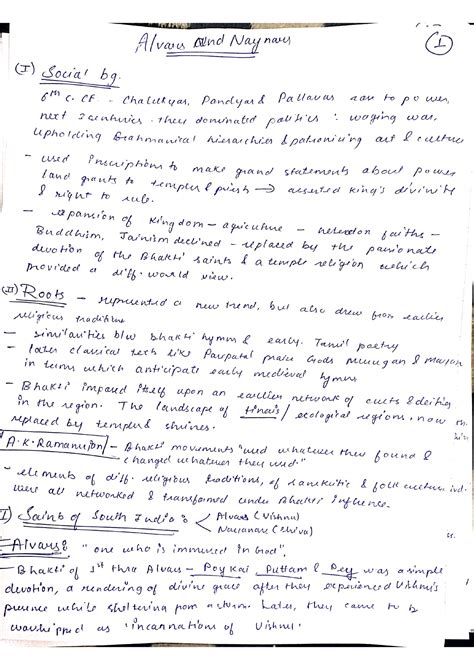 Alvars and Naynars
1
(I) Social bg.
6th C. CE - Chalukyas, Pandyas & Pallavas came to power,
next 3 centuries they dominated politics : waging war,
upholding Brahmanical hierarchies & patronising art & culture
- used inscriptions to make grand statements about power
land grants to temples & priests → asserted king's divinity
& right to rule.
- expansion of kingdom - agriculture - heterodox faiths -
Buddhism, Jainism declined - replaced by the passionate
devotion of the Bhakti saints & a temple religion which
provided a diff. world view.
(II) Roots - represented a new trend, but also drew from earlier
religious traditions
- similarities b/w bhakti hymns & early Tamil poetry
- later classical texts like Paripatal praise Gods Murugan & Mayon
in terms which anticipate early medieval hymns
- Bhakti imposed itself upon an earlier network of cults & deities
in the region. The landscape of tinais / ecological regions, now
replaced by temples & shrines.
A.K. Ramanujan - Bhakti movements "used whatever they found &
changed whatever they used."
- elements of diff. religious traditions, of sanskritic & folk culture
were all networked & transformed under Bhakti influence.
I) Saints of South India : Alvars (Vishnu)
Nayanars (Shiva)
Alvars : "one who is immersed in God",
- Bhakti of 1st three Alvars - Poykai, Puttam & Pey was a simple
devotion, a rendering of divine grace after they experienced Vishnu's
presence while sheltering from a storm. Later, they came to b
worshipped as incarnations of Vishnu.